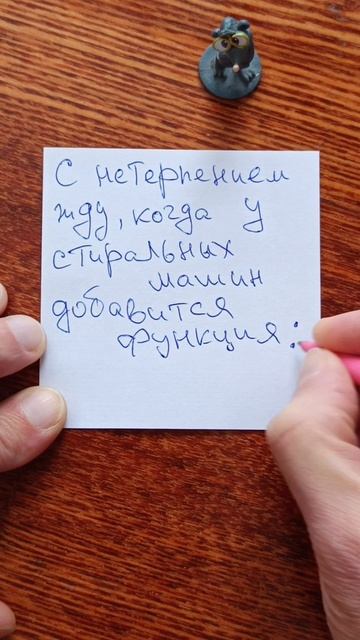 С нетерпением
жду, когда у
стиральных
машин
добавится
функция: